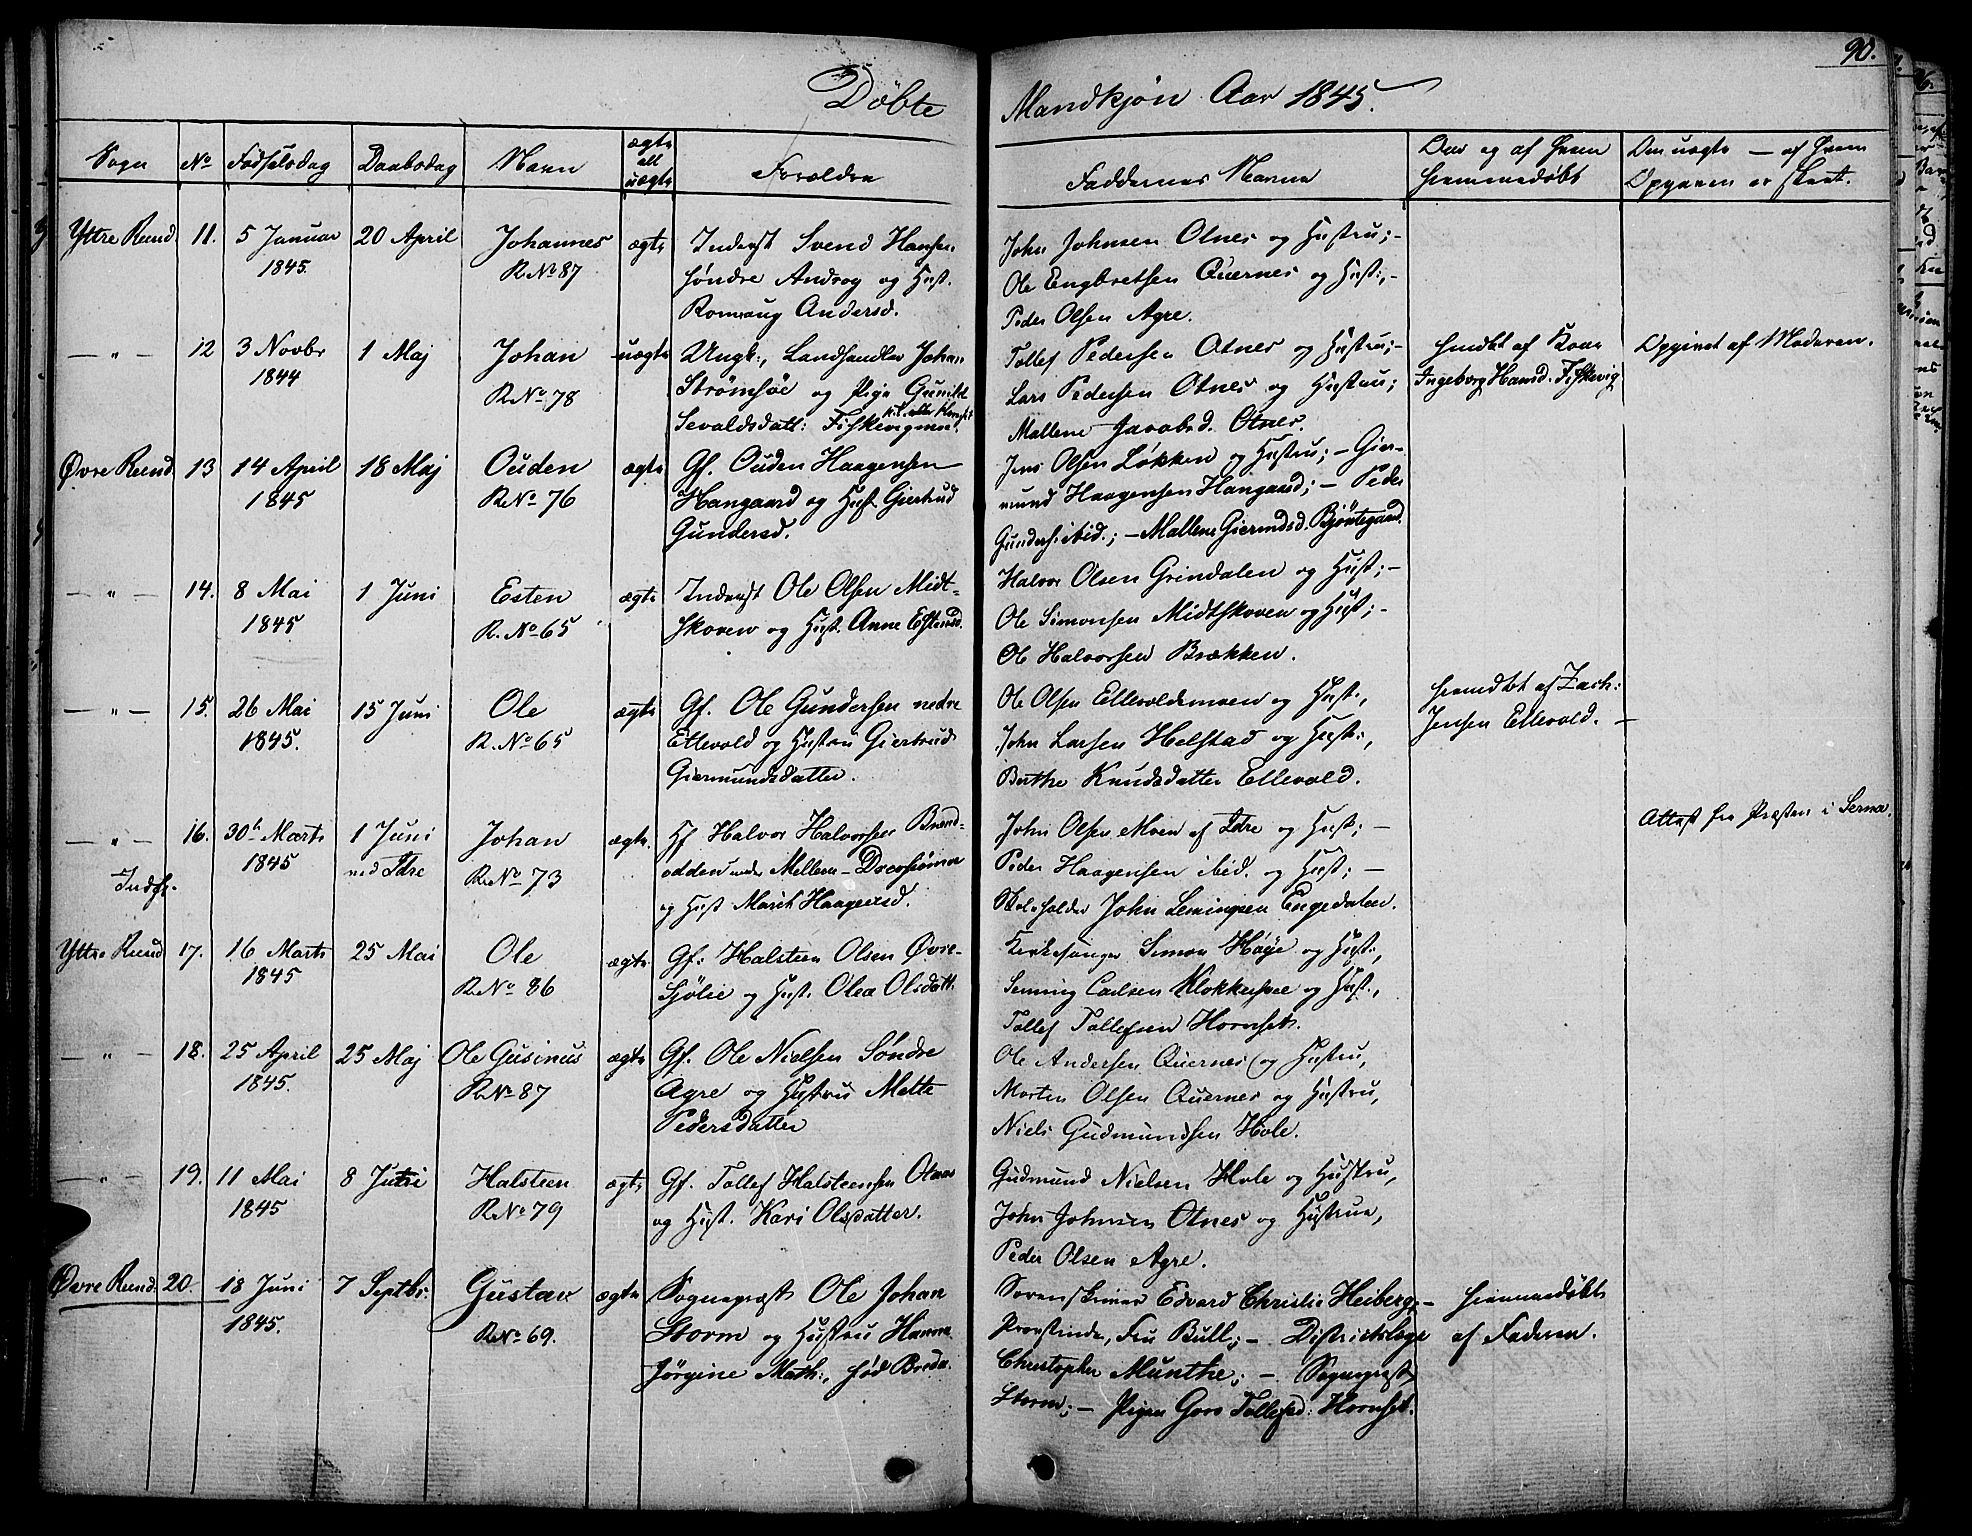 90.
Döbte Mandkjön Aar 1845.
Sogn No Födselsdag Daabsdag Navn ægte ell uægte Forældre Faddernes Navne Naar og af hvem hjemmedöbt Den uægte — af hvem Opgaven er skeet.
Yttre Rend. 11. 5 Januar 20 April Johannes ægte Inderst Svend Hansen John Johnsen Otnes og Hustru;-
1845. R No 87 söndre Androg og Hust. Ole Engbretsen Quernes og Hust:,-
Romaug Andersd. Peder Olsen Agre.
— " — 12 3 Novbr 1 Maj Johan uægte Ungk:, Landhandler Johan Tollef Pedersen Otnes og Hustru;- hmdbt af Kone Opgivet af Moderen.
1844 R No 78 Strömsöe og Pige Gunild Lars Pedersen Otnes og Hustru; Ingeborg Hansd. Fiskevig
Sevaldsdatt: Fiskevigmoen. Mallene Jacobsd. Otnes.
Övre Rend. 13 14 April 18 Maj Ouden ægte Gf. Ouden Haagensen Jens Olsen Lökken og Hustru; - Gier-
1845 R No 76 Hangaard og Hust Giertrud mund Haagensen Hangaard; - Peder
Gundersd. Gunders. ibid.; - Mallene Giermdsd. Bjöntegaard.
— " — 14. 8 Mai 1 Juni Esten ægte Inderst Ole Olsen Midt- Halvor Olsen Grindalen og Hust; -
1845 R. No 65 skoven og Hust. Anne Estensd. Ole Simonsen Midtskoven og Hust; -
Ole Halvorsen Brækken.
— " — 15. 26 Mai 15 Juni Ole ægte Gf. Ole Gundersen nedre Ole Olsen Ellevoldsmoen og Hust:, hmmdbt af Zach:
1845. R. No 65 Ellevold og Hustru Giertrud John Larsen Helstad og Hust:, Jensen Ellevold. —
Giermundsdatter. Berthe Knudsdatter Ellevold.
— " — 16. 30te Marts 1 Juni Johan ægte. Hf Halvor Halvorsen Brænd- John Olsen Moen af Idre og Hust; - Attest fra Præsten i Serna.
1845 ved Idre R No 73 odden under Mellem-Drevsjömoe Peder Haagensen ibid. og Hust; -
Indft. og Hust Marit Haagensd. Skoleholder John Lemingsen Engedalen.
Yttre Rend 17. 16 Marts 25 Mai Ole ægte. Gf: Halsteen Olsen Övre- Kirkesanger Simon Höye og Hust:,
1845 R No 86 Sjölie og Hust. Olea Olsdatt. Senning Carlsen Klokkerhoe og Hust.,
Tollef Tollefsen Hornset.
— " — 18. 25 April 25 Maj Ole Gusinus ægte Gf. Ole Nielsen Söndre Ole Andersen Quernes og Hustru,
1845. R No 87 Agre og Hustru Mette Morten Olsen Quernes og Hustru,
Pedersdatter Niels Gudmundsen Hole.
— " — 19. 11 Mai 8 Juni Halsteen ægte Gf. Tollef Halsteensen Otnes Gudmund Nielsen Hole og Hustru,
1845 R No 79 og Hust. Kari Olsdatter. John Johnsen Otnes og Hustrue,
Peder Olsen Agre.
Övre Rend. 20. 18 Juni 7 Septbr. Gustav ægte Sognepræst Ole Johan Sorenskriver Edvard Christie Heiberg;- hiemmedöbt
1845. R No 69. Storm og Hustru Hanna Provstinde, Fru Bull; - Districtslæge af Faderen.
Jörgine Math:, föd Breda. Christopher Munthe; - Sognepræst
Storm; - Pigen Goro Tollefsd: Hornset.